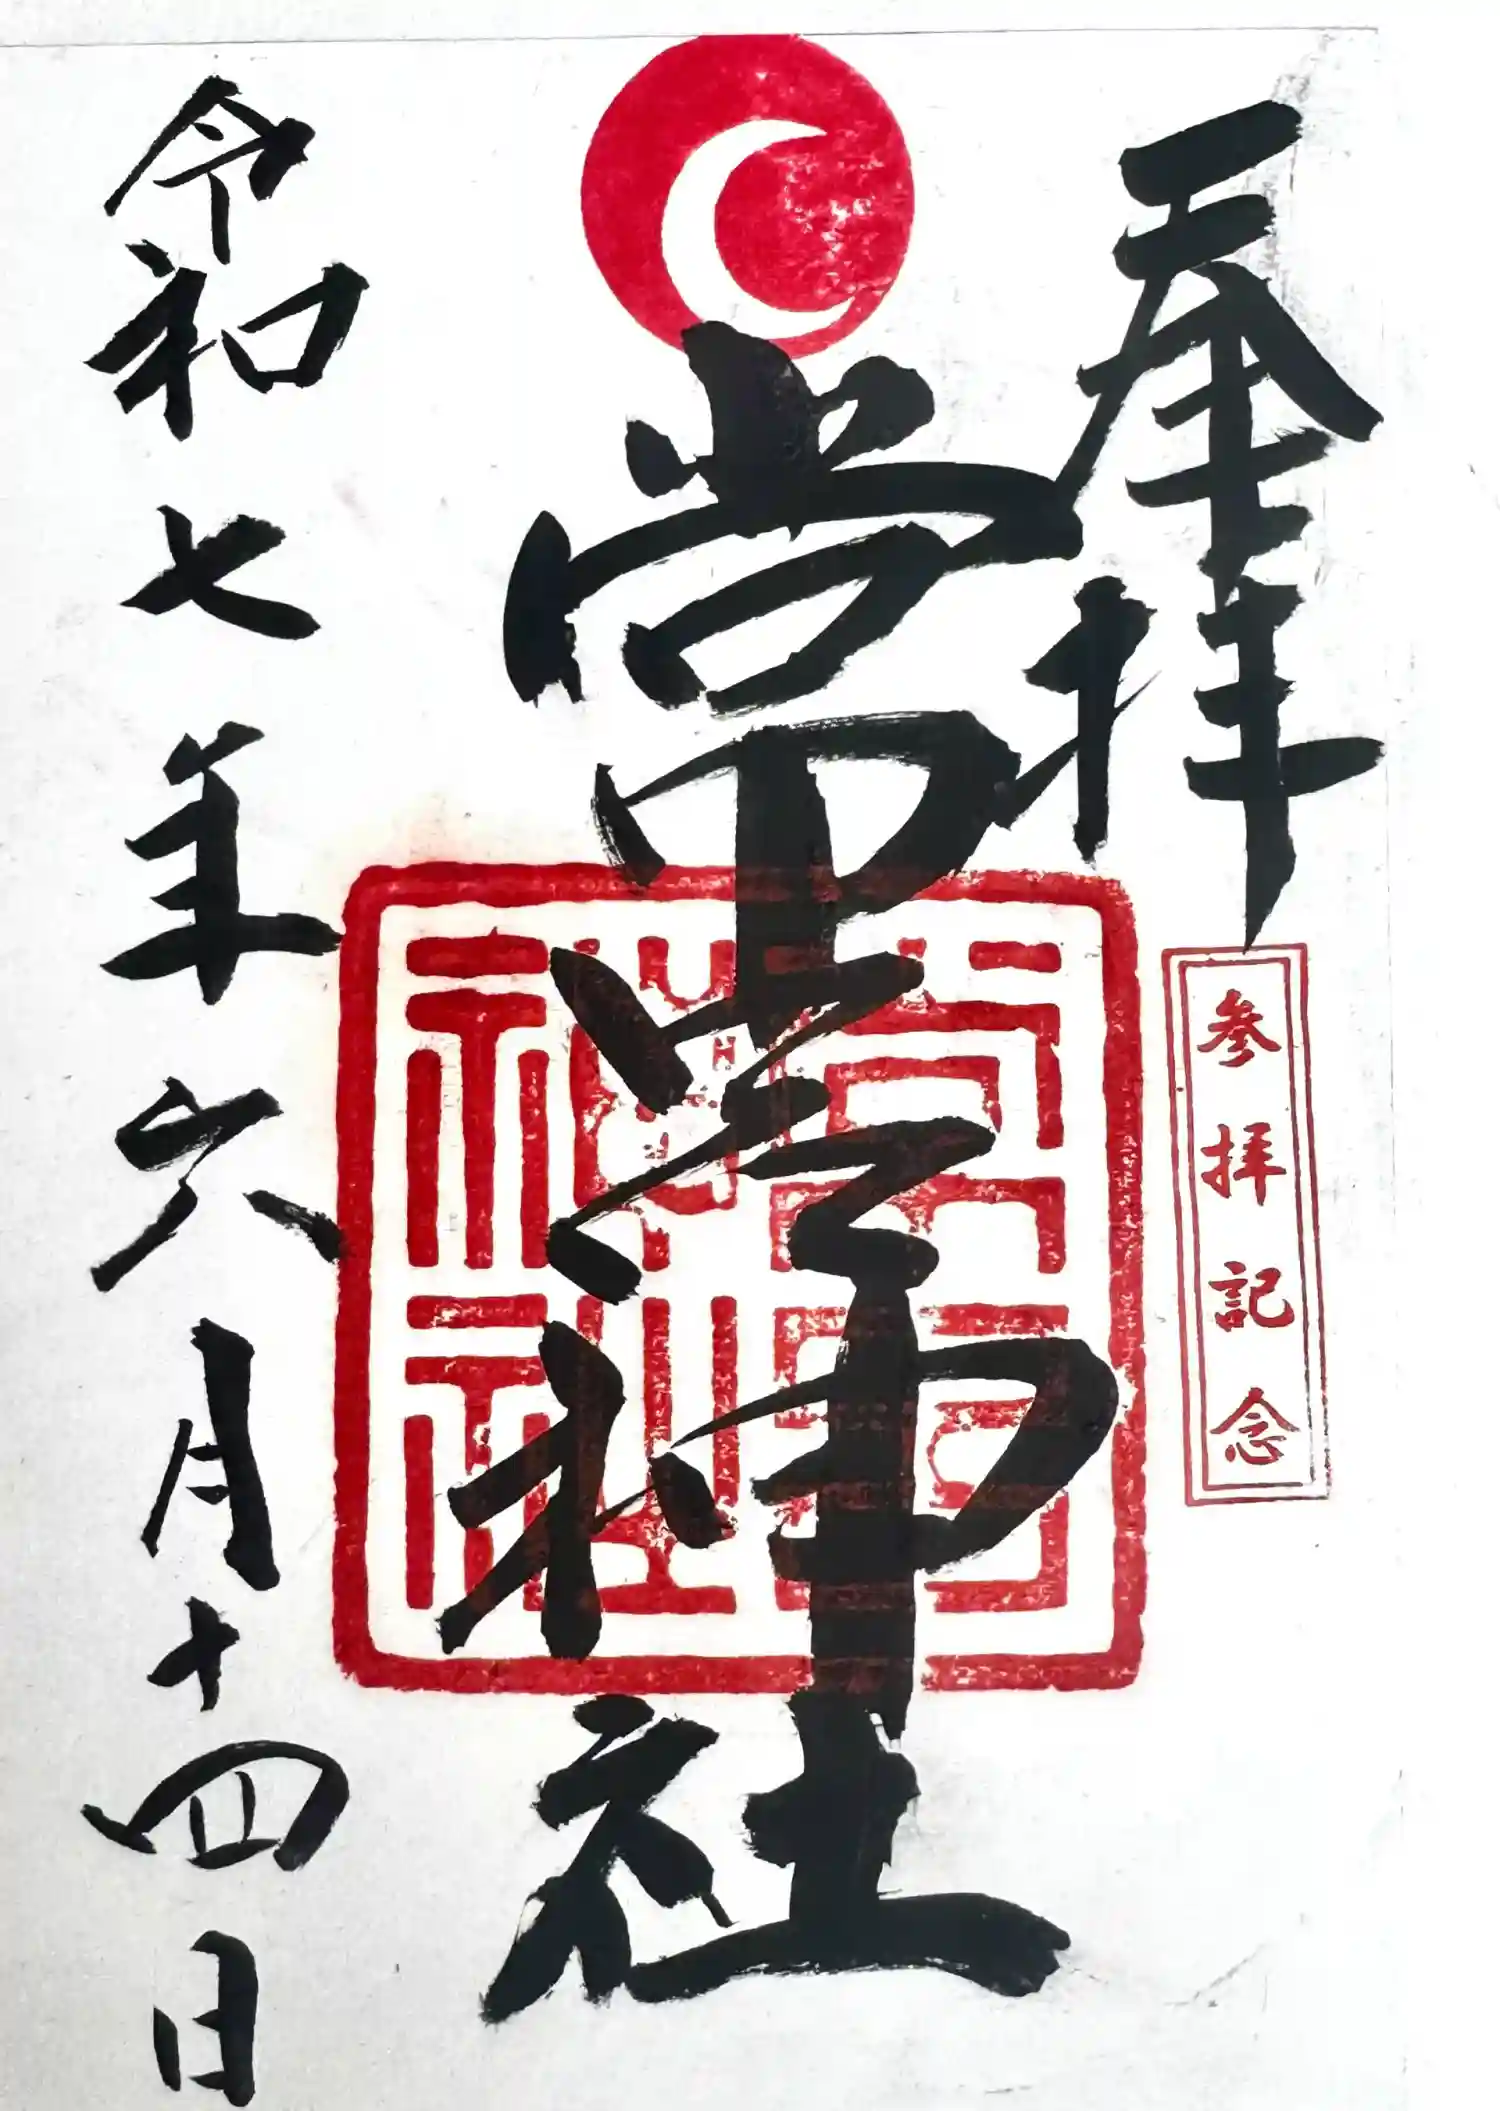 奉拝
参拝記念
常宮神社
常宮神社
令和七年六月十四日